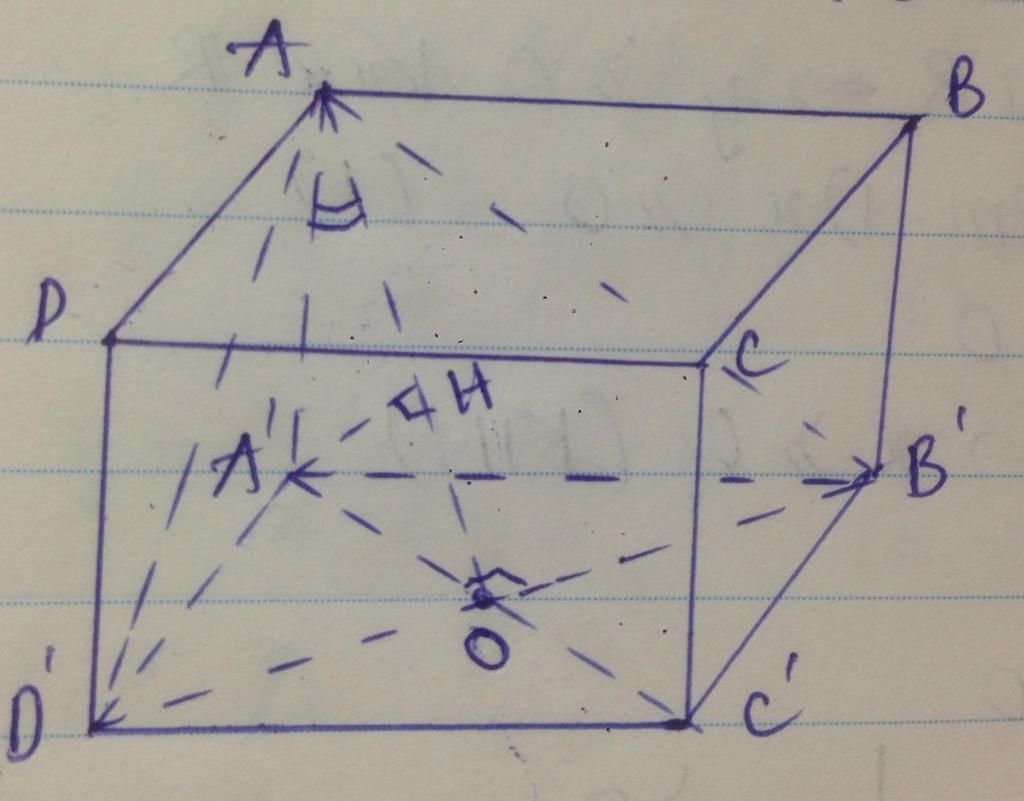 A
B
D
C
H
A'
B'
O
D'
C'